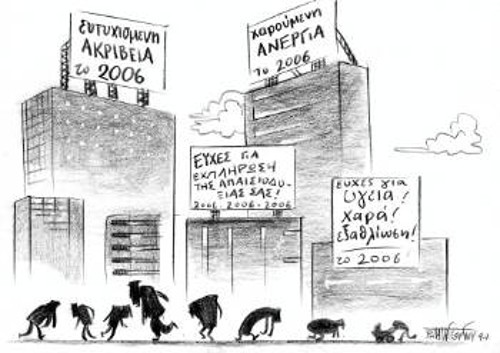 ευτυχισμενη
ΑΚΡΙΒΕΙΑ
το 2006
χαρούμενη
ΑΝΕΡΓΙΑ
το 2006
ΕΥΧΕΣ ΓΙΑ
ΕΚΠΛΗΡΩΣΗ
ΤΗΣ ΑΠΑΙΣΙΟΔΟ-
ΞΙΑΣ ΣΑΣ!
2006-2006-2006
ευχες για
υγεία!
χαρά!
εξαθλίωση!
το 2006